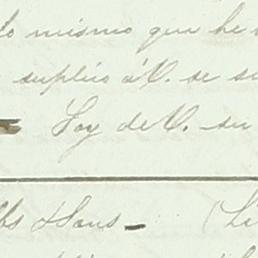 lo mismo que he
suplico á V. se
Soy de V. su
& Sons